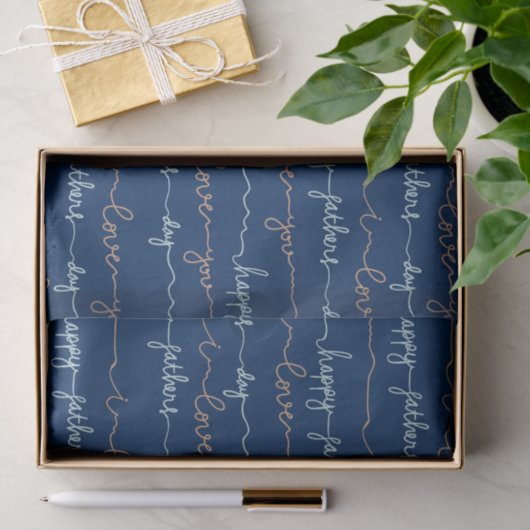 thers day happy
love y i
day fathers
love you i love
happy day
you love
fathers d happy fa
i lov
thers day happy father
love